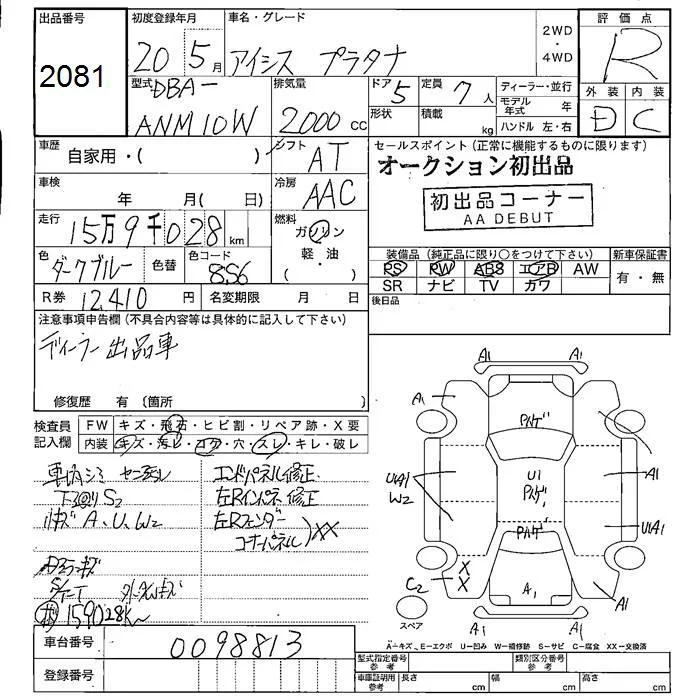 出品番号
2081
初度登録年月
20 5月
車名・グレード
アイシス プラタナ
2WD
・
4WD
評価点
R
外装 内装
D C
型式 DBA-
ANM10W
排気量
2000 cc
ドア 5
形状
定員 7人
積載 kg
ディーラー・並行
モデル年式 年
ハンドル 左・右
車歴
自家用・( )
シフト
AT
セールスポイント(正常に機能するものに限ります)
オークション初出品
初出品コーナー
AA DEBUT
車検
年 月( 日)
冷房
AAC
走行
15万9千028km
燃料
ガソリン
軽・油
( )
色
ダークブルー
色替
色コード
8S6
装備品(純正品に限り○をつけて下さい)
PS PW ABS エアB AW
SR ナビ TV カワ
新車保証書
有・無
R券 12,410円
名変期限 月 日
後日品
注意事項申告欄(不具合内容等は具体的に記入して下さい)
ディーラー出品車
修復歴 有(箇所 )
検査員
記入欄
FW キズ・飛石・ヒビ割・リペア跡・X要
内装 キズ・汚レ・コゲ・穴・スレ・キレ・破レ
車内シミ
下廻りS2
A、U、W2
159028k
エンドパネル修正
左Rインパネ修正
左Rフェンダー
コーナーパネル)XX
A1 A1
A1
Pハゲ
U1A1
W2
U1
Pハゲ
A1
U1A1
Pハゲ
X
X
C2
A1
A1
スペア
A1 A1
A=キズ、E=エクボ U=凹み W=補修跡 S=サビ C=腐食 XX=交換済
車台番号
0098813
登録番号
型式指定番号
参考
類別区分番号
参考
車庫証明用
参考
長さ cm 幅 cm 高さ cm